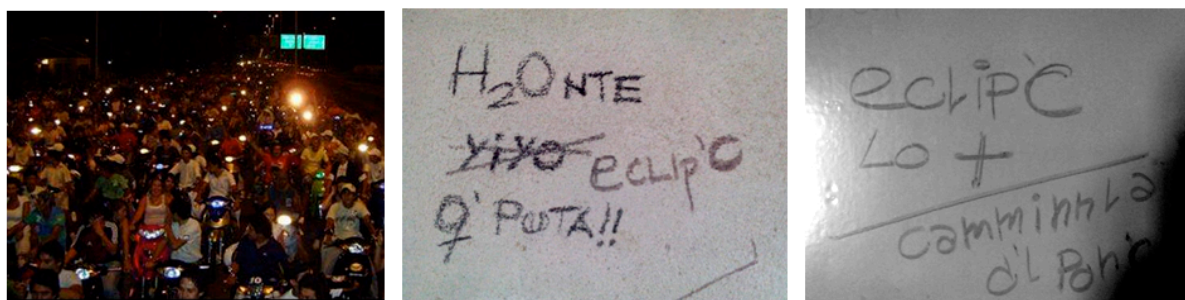 H₂ONTE
yiyo eclip'C
q' PUTA!!
eclip'C
LO +
camminnla
d'L